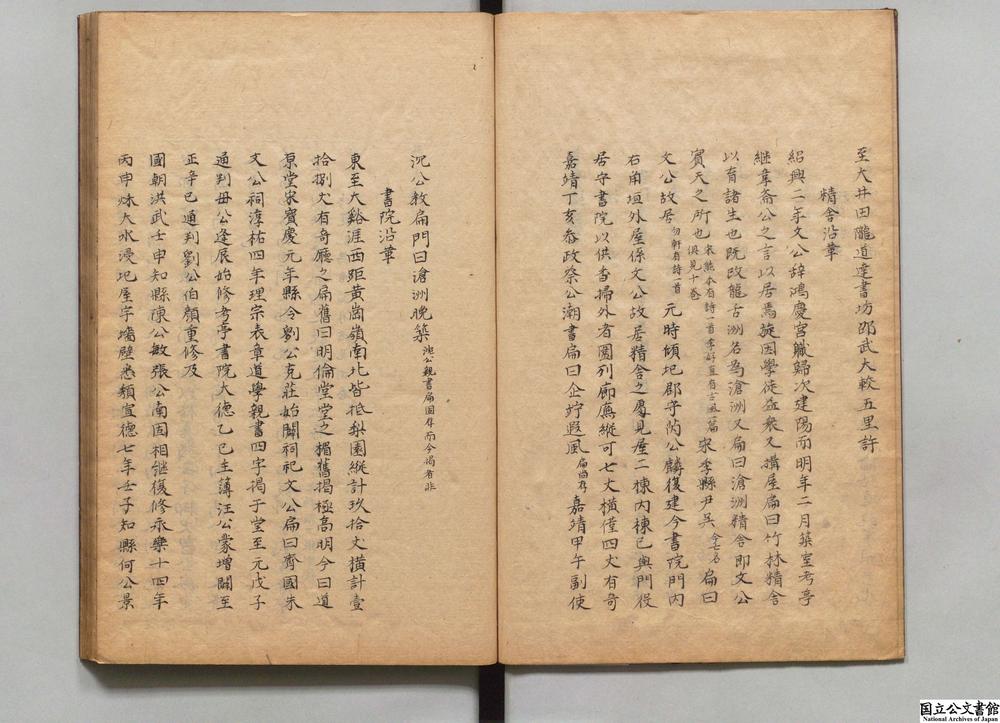 至大井田隴道達書坊邵武大較五里許
精舍沿革
紹興二年文公辭鴻慶宮職歸次建陽而明年二月築室考亭
継韋斋公之言以居焉旋因學徒益衆又搆屋扁曰竹林精舍
以育諸生也既改龍舌洲名爲滄洲又扁曰滄洲精舍即文公
賓天之所也宋熊本有詩一首李好直有古風一篇俱見十巻宋季縣尹呉今七名扁曰
文公故居勿軒有詩一首元時傾圯郡守芮公麟復建今書院門内
右甬垣外屋係文公故居精舍之處見屋二棟内棟已與門役
居守書院以供香掃外者圜列廊廡縱可七丈横僅四丈有奇
嘉靖丁亥叅政祭公潮書扁曰企竚遐風扁尚存嘉靖甲午副使
沉公教扁門曰滄洲晚築沈公親書扁固存而今揭者非
書院沿革
東至大谿涯西距黄崗嶺南北皆抵梨園縱計玖拾丈横計壹
拾捌丈有奇廳之扁舊曰明倫堂堂之楣舊揭極高明今曰道
原堂宋寳慶元年縣令劉公克莊始闢祠祀文公扁曰齊國朱
文公祠淳祐四年理宗表章道學親書四字揭于堂至元戊子
通判毋公逢辰始修考亭書院大德乙巳主薄汪公蒙增闢至
正辛巳通判劉公伯顔重修及
國朝洪武壬申知縣陳公敏張公南固相継復修永樂十四年
丙申秌大水浸圯屋宇墻壁悉頽宣德七年壬子知縣何公景
国立公文書館
National Archives of Japan